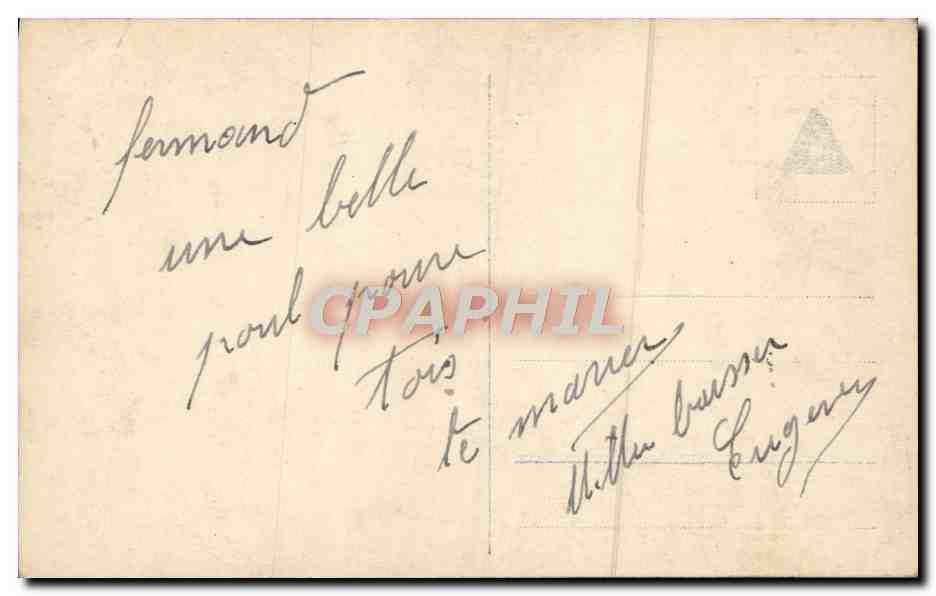 fernand
une belle
poul poure
tois
te marier
baisser
Eugene
CPAPHIL